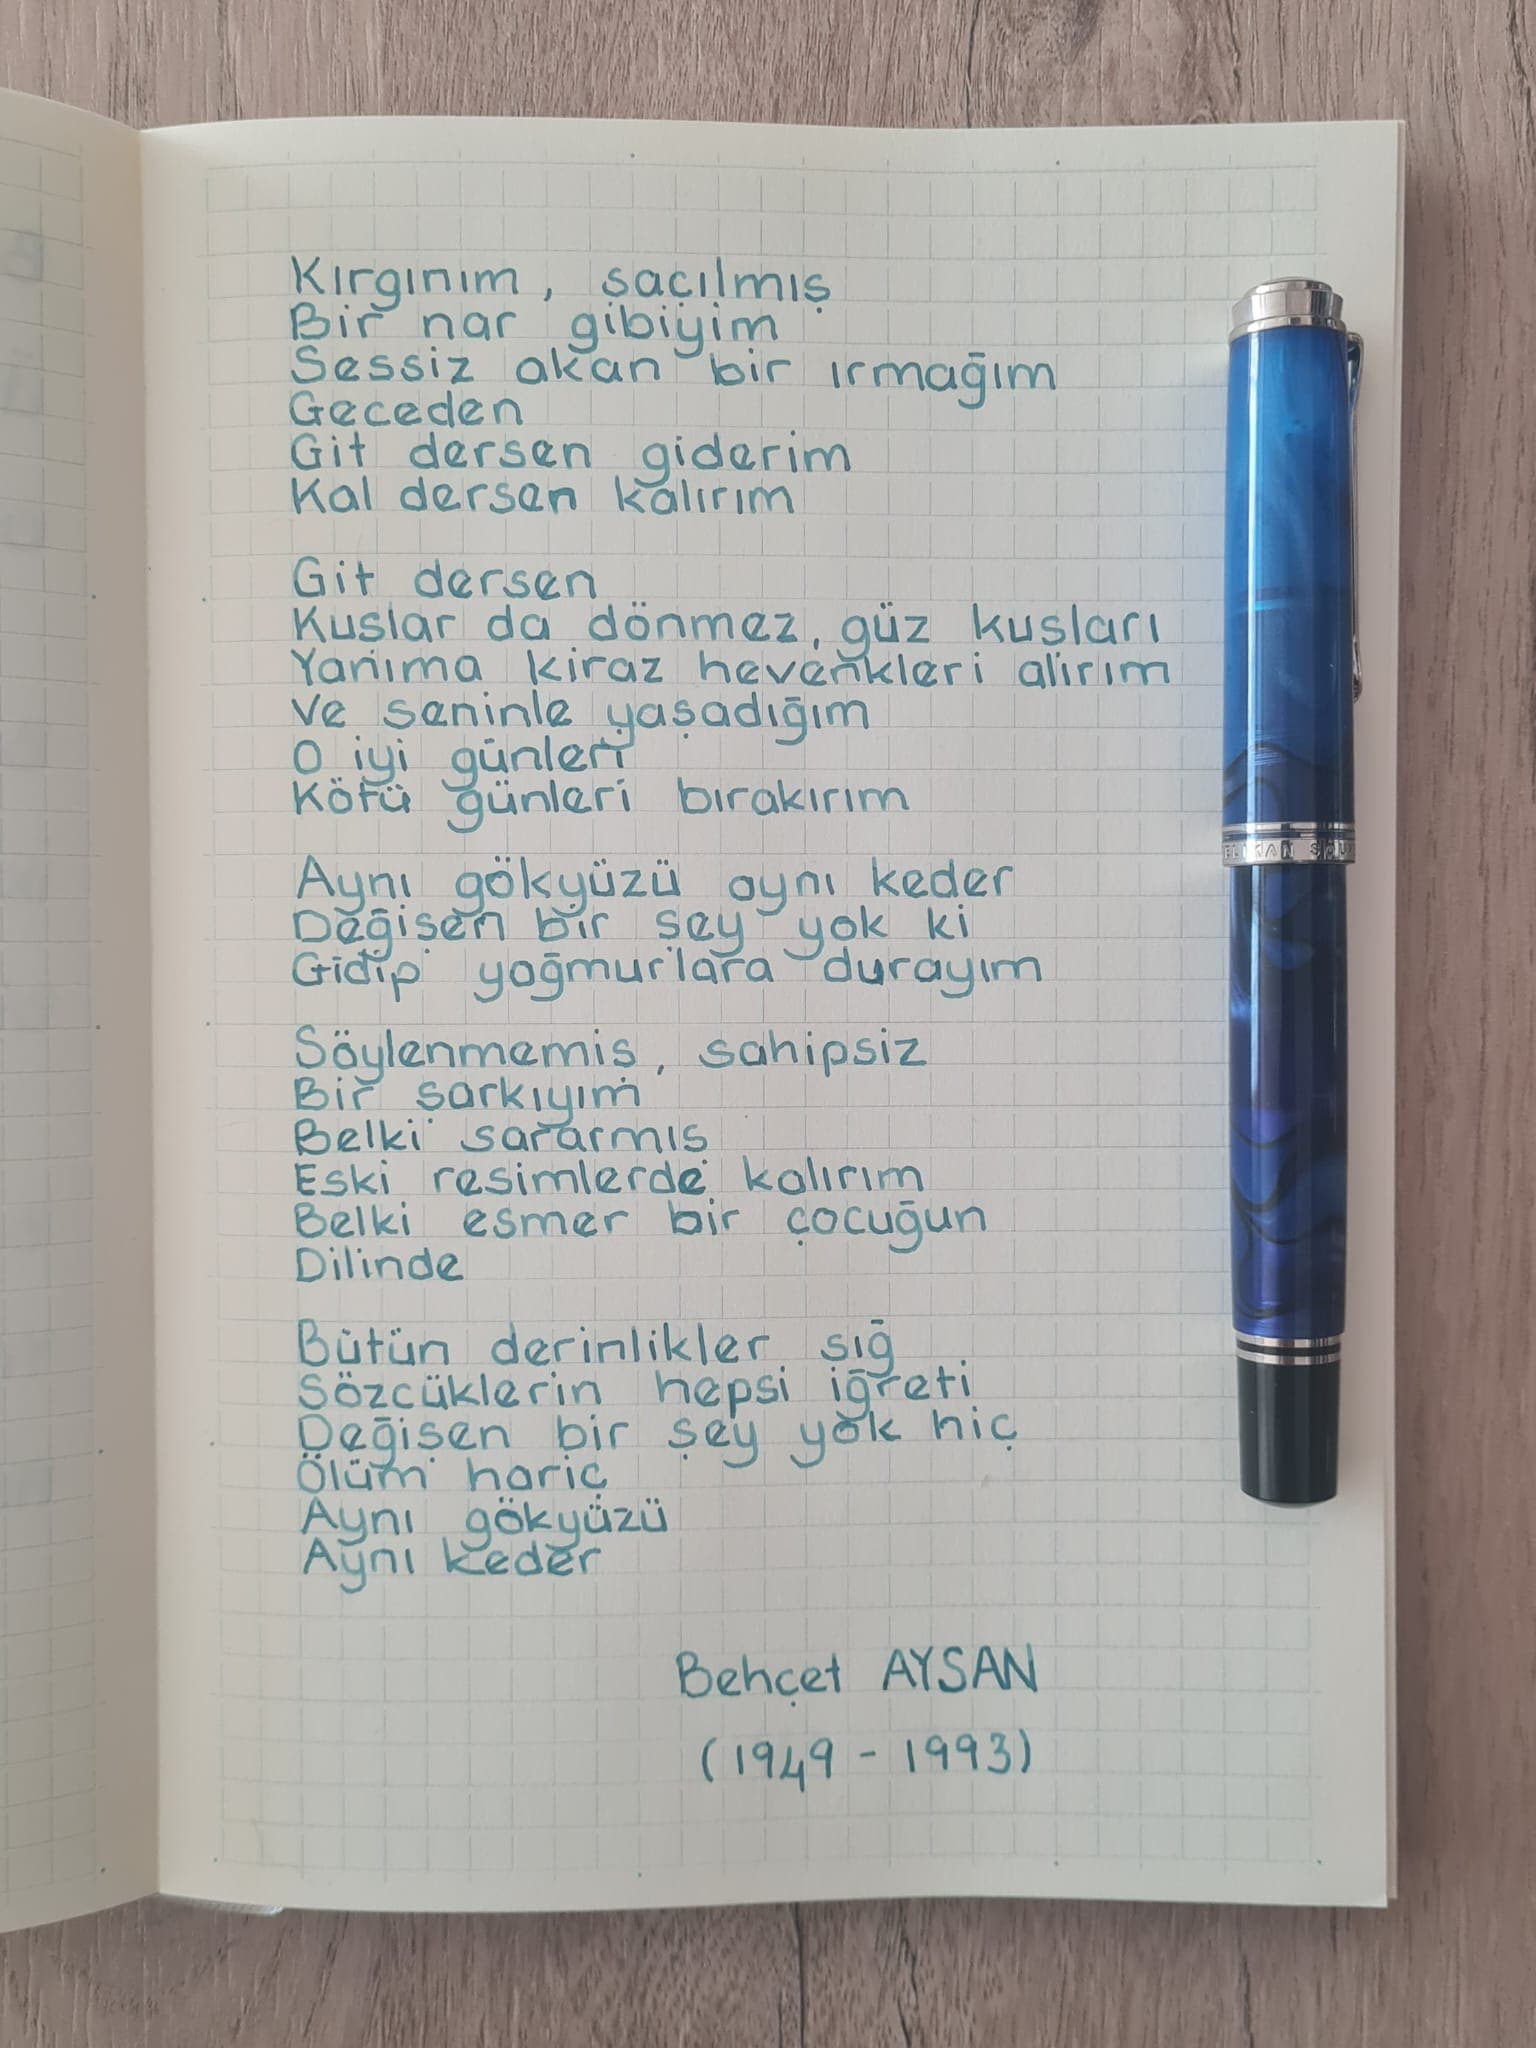 Kırgınım, saçılmış
Bir nar gibiyim
Sessiz akan bir ırmağım
Geceden
Git dersen giderim
Kal dersen kalırım
Git dersen
Kuşlar da dönmez, güz kuşları
Yanıma kiraz hevenkleri alırım
Ve seninle yaşadığım
O iyi günleri
Kötü günleri bırakırım
Aynı gökyüzü aynı keder
Değişen bir şey yok ki
Gidip yağmurlara durayım
Söylenmemiş, sahipsiz
Bir şarkıyım
Belki sararmış
Eski resimlerde kalırım
Belki esmer bir çocuğun
Dilinde
Bütün derinlikler sığ
Sözcüklerin hepsi iğreti
Değişen bir şey yok hiç
Ölüm hariç
Aynı gökyüzü
Aynı keder
Behçet AYSAN
(1949 - 1993)